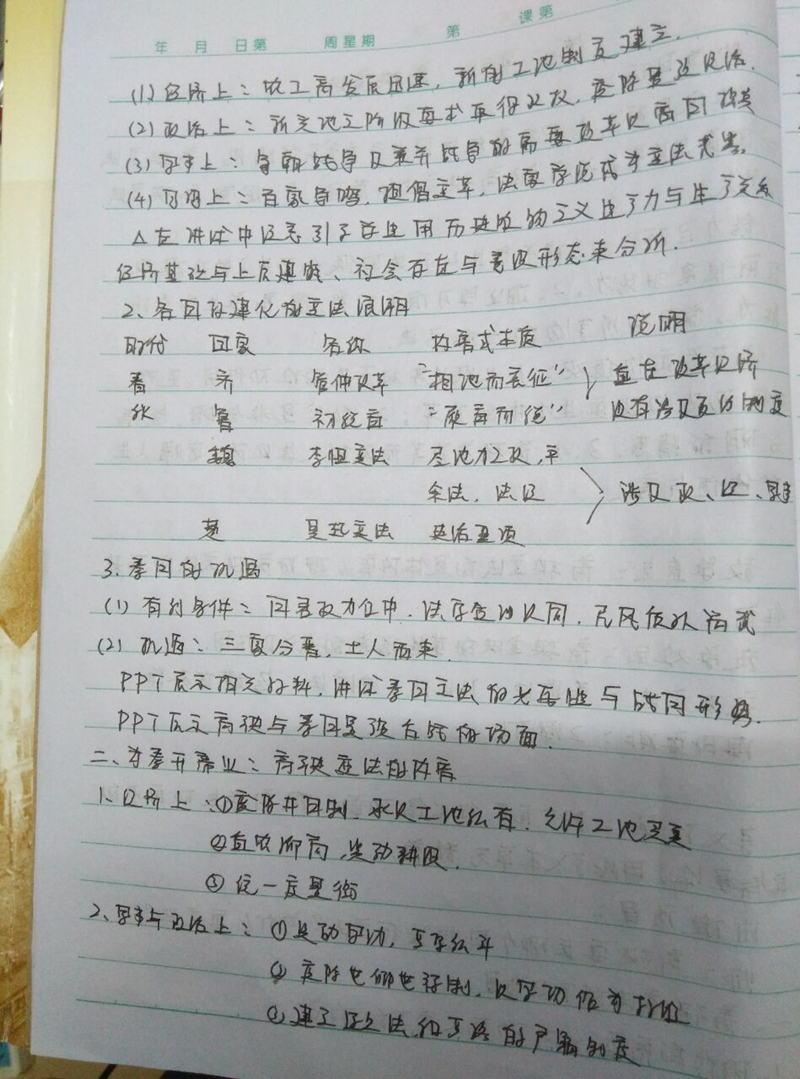 年 月 日第 周星期 第 课第
(1)经济上：农工商发展迅速，新的土地制度建立.
(2)政治上：新兴地主阶级要求取得政权，废除奴隶主
(3)军事上：争霸战争及兼并战争的需要改革以富国强兵
(4)思想上：百家争鸣，提倡变革，法家学说成为变法
△在讲述中注意引导学生用历史唯物主义生产力与生产关系
经济基础与上层建筑、社会存在与意识形态来分析.
2、各国的变法说明
时代 国家 名称 内容或本质 说明
春 齐 管仲改革 “相地而衰征” 旨在改革经济
秋 鲁 初税亩 “履亩而税” 没有涉及政治制度
魏 李悝变法 尽地力之教，平
籴法，法经 涉及政、经、军事
楚 吴起变法
3.秦国的机遇
(1)有利条件：国家权力集中，法家 民风
(2)机遇：三家分晋，士人西来.
PPT展示相关材料，讲述秦国变法的必要性与战国形势.
PPT展示商鞅与秦国 的场面.
二、为秦开帝业：商鞅变法的内容
1、经济上：①废除井田制，承认土地私有，允许土地买卖
②重农抑商，奖励耕织.
③统一度量衡
2、军事与政治上：①奖励军功，严禁私斗
②废除世卿世禄制，以军功
③建立 的户籍制度